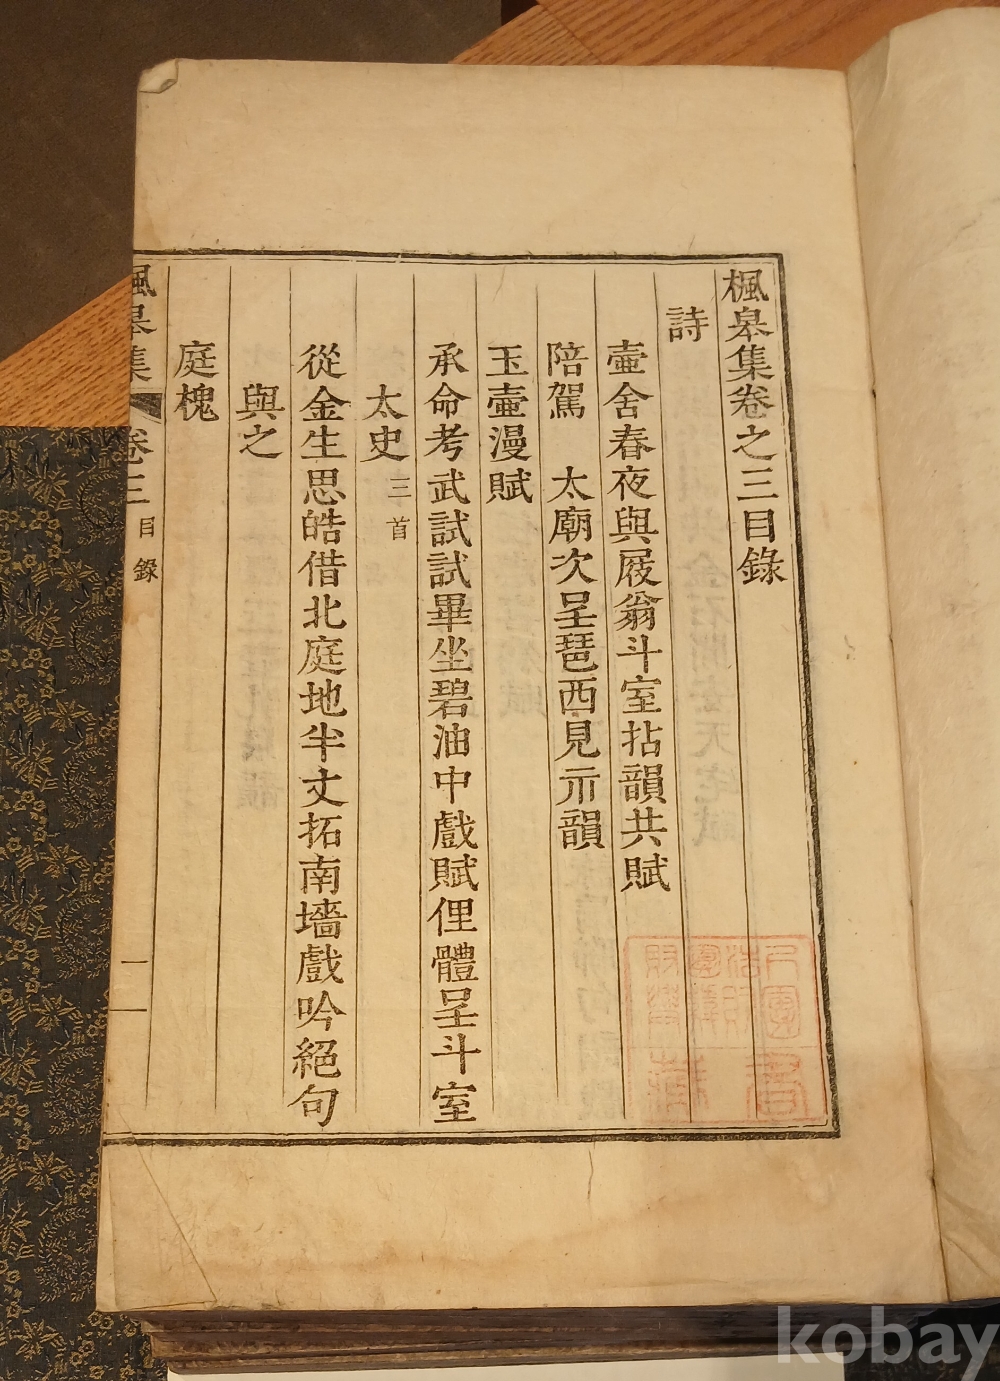 楓皋集卷之三目錄
詩
壷舍春夜與屐翁斗室拈韻共賦
陪駕 太廟次呈琶西見示韻
玉壷漫賦
承命考武試試畢坐碧油中戲賦俚體呈斗室
太史三首
從金生思皓借北庭地半丈拓南墻戲吟絕句
與之
庭槐
楓皋集 卷三 目錄 一
kobay